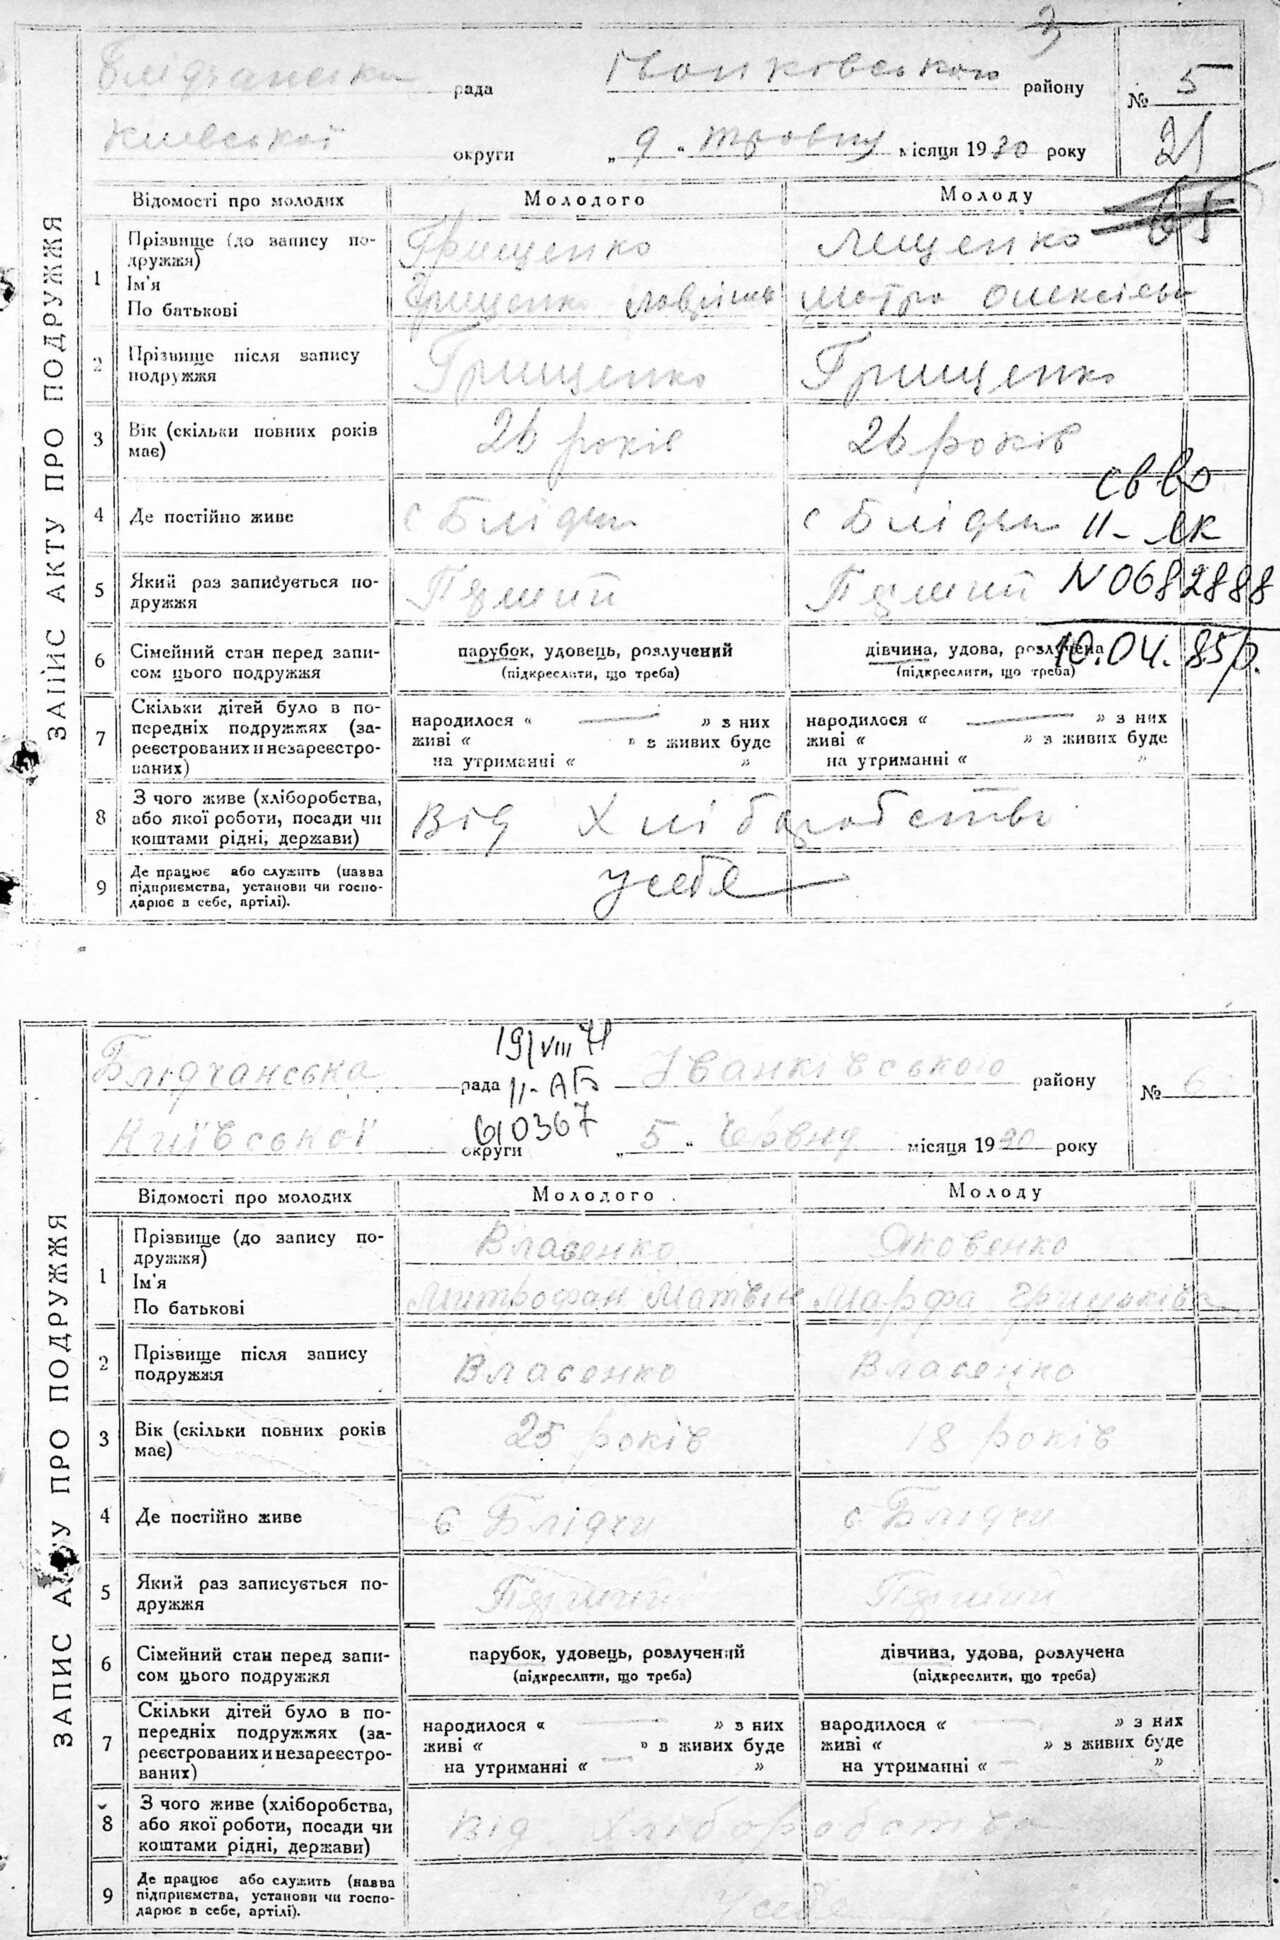 3
Блідчанська рада Іванківського району № 5
Київської округи „ 9 “ травня місяця 1930 року 21
ЗАПИС АКТУ ПРО ПОДРУЖЖЯ
Відомості про молодих Молодого Молоду
1 Прізвище (до запису по-
дружжя) Грищенко Лищенко
Ім'я
По батькові Грищенко Мотра Олексіевн
2 Прізвище після запису
подружжя Грищенко Грищенко
3 Вік (скільки повних років
має) 26 років 26 років
св во
4 Де постійно живе с Блідчи с Блідчи II- ЯК
5 Який раз записується по-
дружжя Перший Перший N0682888
6 Сімейний стан перед запи-
сом цього подружжя парубок, удовець, розлучений дівчина, удова, розлучена 10.04.85р.
(підкреслити, що треба) (підкреслити, що треба)
7 Скільки дітей було в по-
передніх подружжях (за-
реєстрованих и незареєстро-
ваних) народилося “ — ” з них народилося “ — ” з них
живі “ ” з живих буде живі “ ” з живих буде
на утриманні “ ” на утриманні “ ”
8 З чого живе (хліборобства,
або якої роботи, посади чи
коштами рідні, держави) Від Хліборобства
9 Де працює або служить (назва
підприємства, установи чи госпо-
дарює в себе, артілі). У себе
19/VIII 71
Блідчанська рада II-АБ Іванківського району № 6
610367
Київської округи „ 5 “ червня місяця 1930 року
ЗАПИС АКТУ ПРО ПОДРУЖЖЯ
Відомості про молодих Молодого Молоду
1 Прізвище (до запису по-
дружжя) Власенко Яковенко
Ім'я
По батькові Митрофан Матвіїв Марфа Гриньківа
2 Прізвище після запису
подружжя Власенко Власенко
3 Вік (скільки повних років
має) 25 років 18 років
4 Де постійно живе с Блідчи с Блідчи
5 Який раз записується по-
дружжя Перший Перший
6 Сімейний стан перед запи-
сом цього подружжя парубок, удовець, розлучений дівчина, удова, розлучена
(підкреслити, що треба) (підкреслити, що треба)
7 Скільки дітей було в по-
передніх подружжях (за-
реєстрованих и незареєстро-
ваних) народилося “ — ” з них народилося “ — ” з них
живі “ ” в живих буде живі “ ” з живих буде
на утриманні “ — ” на утриманні “ — ”
8 З чого живе (хліборобства,
або якої роботи, посади чи
коштами рідні, держави) Від Хліборобства
9 Де працює або служить (назва
підприємства, установи чи госпо-
дарює в себе, артілі). У себе